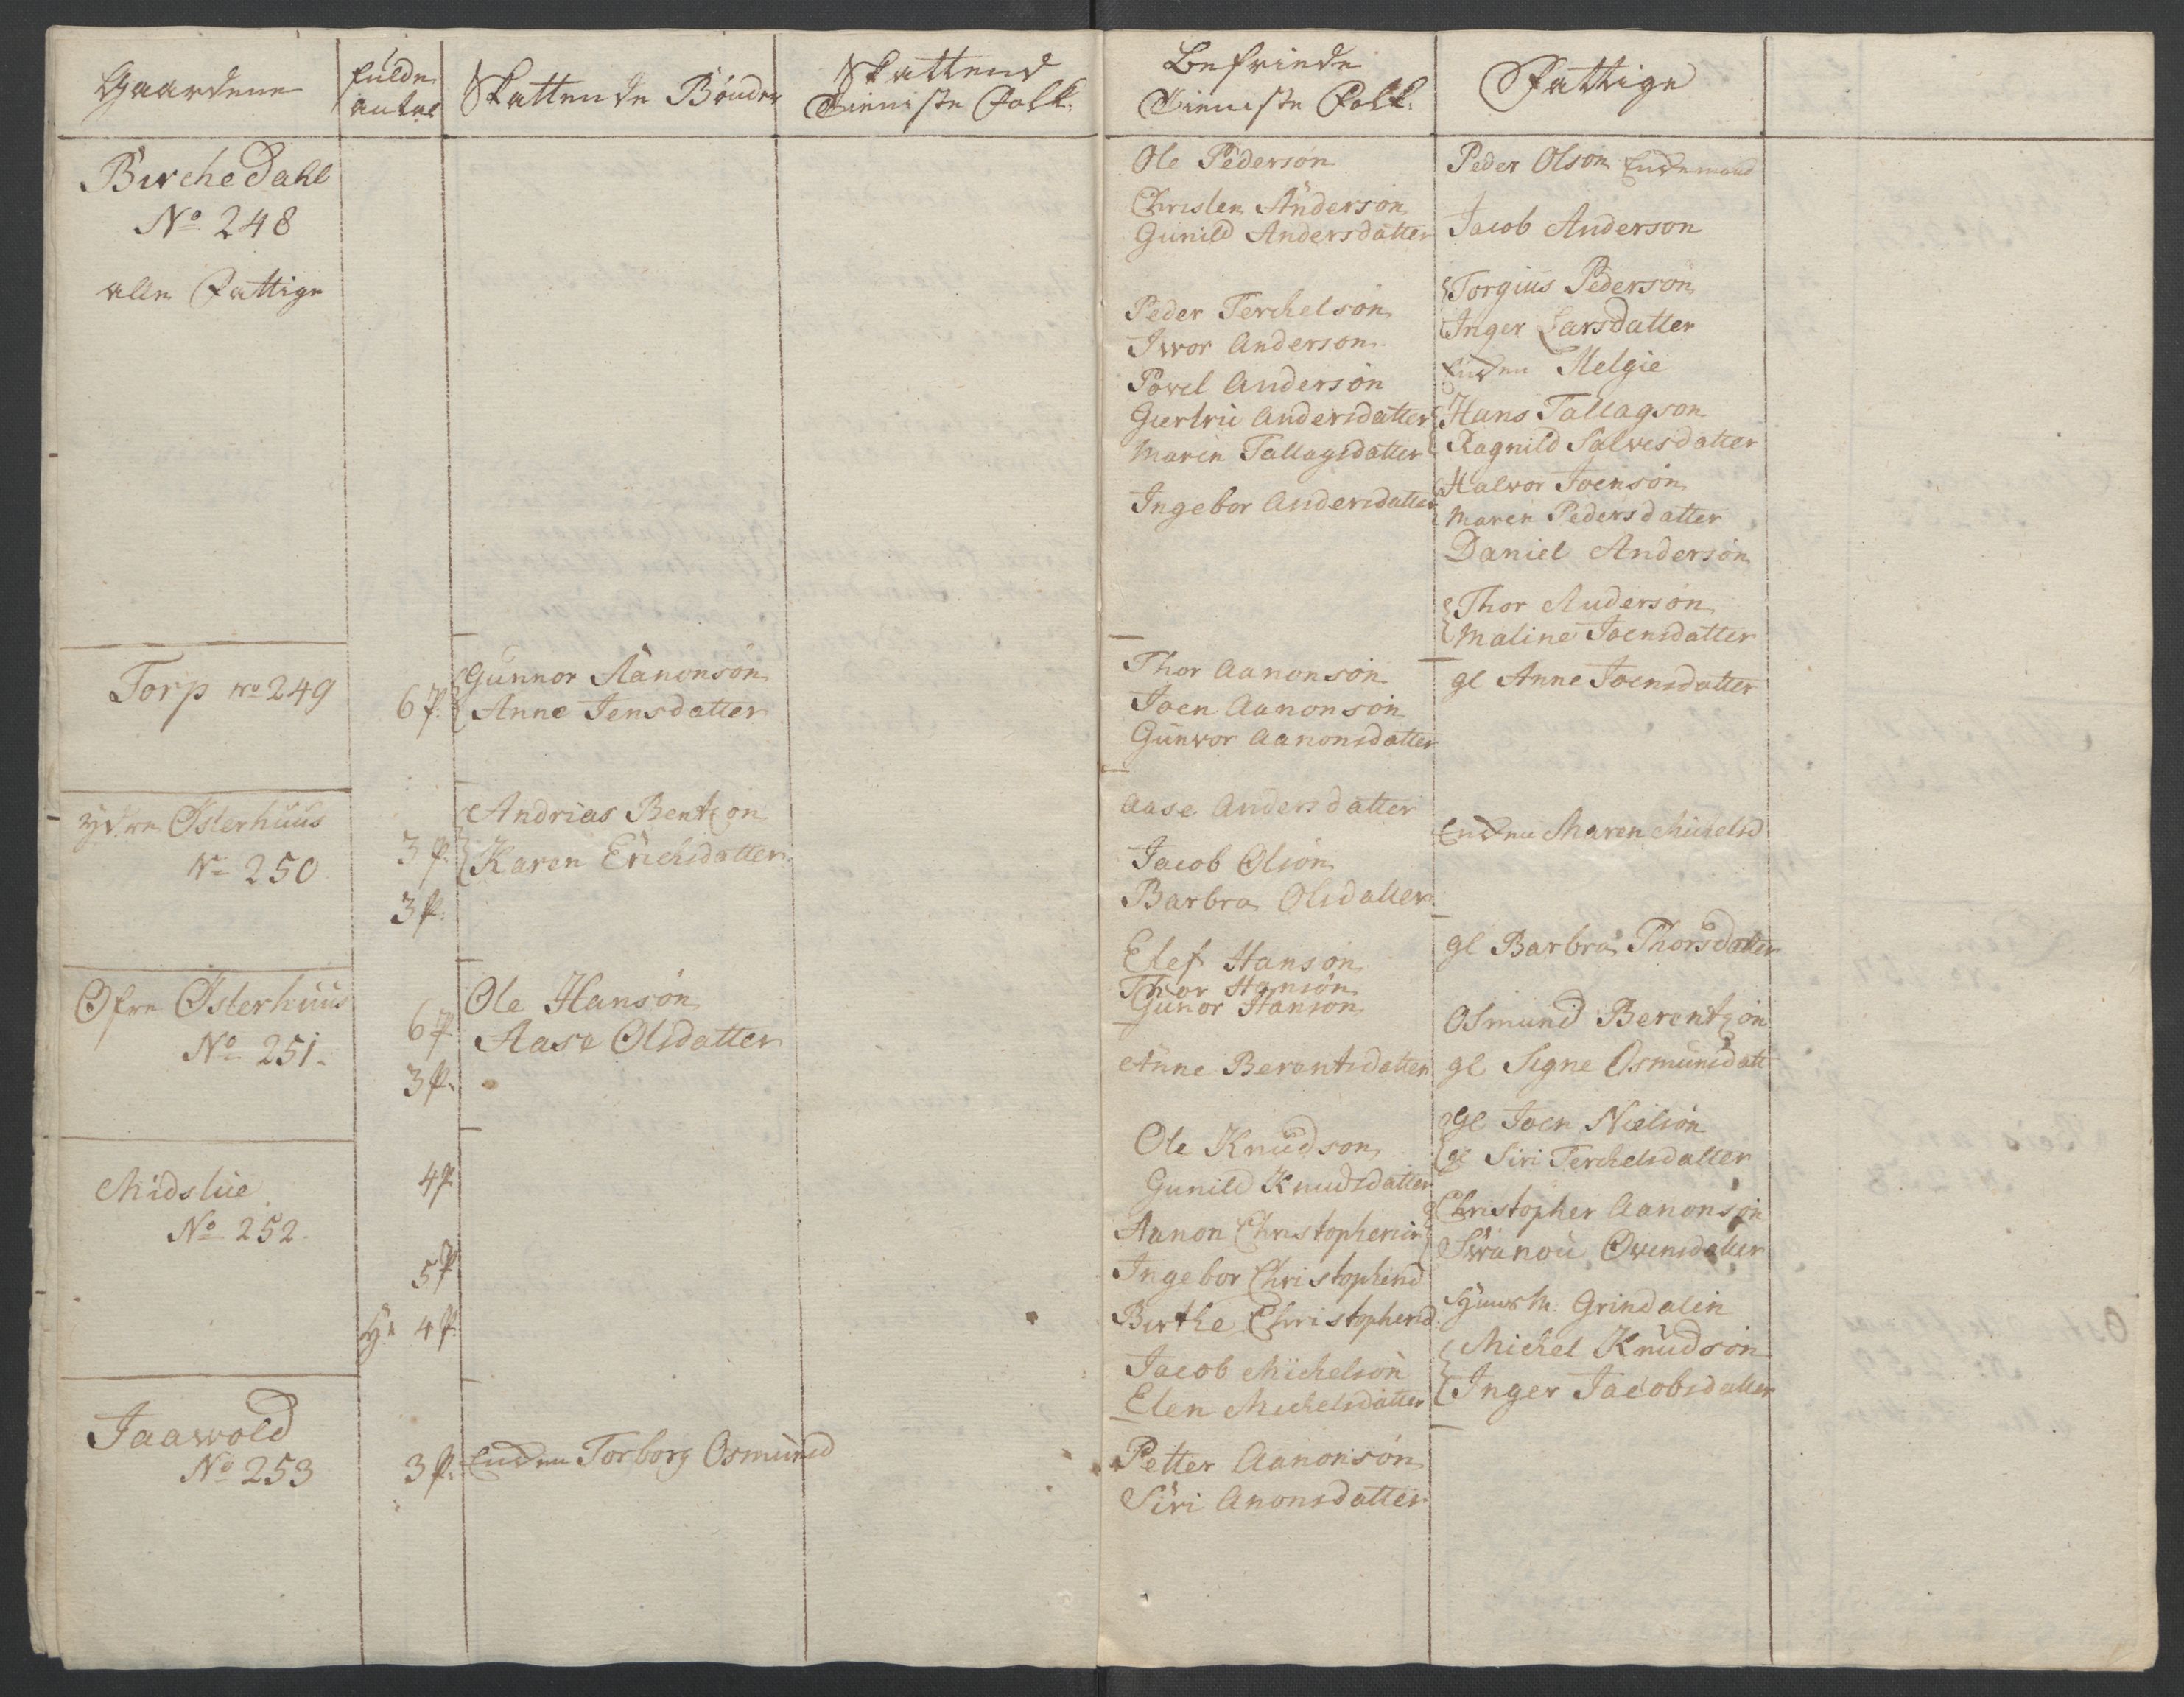 Gaardene
fulde antal
Skattende Bönder
Skattend Tieniste Folk.
Befriede Tieniste Folk.
Fattige
BircheDahl
No 248
alle Fattige
Ole Pedersøn
Christen Andersøn
Gunild Andersdatter
Peder Terchelsøn
Iwor Anderson
Powel Andersøn
Giertru Andersdatter
Maren Tallagsdatter
Ingebor Andersdatter
Peder Olsøn Enkemand
Jacob Anderson
Torgius Pedersøn
Inger Larsdatter
Enken Helgie
Hans Tallagson
Ragnild Salvesdatter
Halvor Joensøn
Maren Pedersdatter
Daniel Andersøn
Thor Andersøn
Maline Joensdatter
Torp no 249
6 p.
Gunnor Aanonsøn
Anne Jensdatter
Thor Aanonsøn
Joen Aanonsøn
Gunvor Aanonsdatter
gl Anne Joensdatter
ydre Østerhuus
No 250
3 p.
3 p.
Andrias Bentzon
Karen Erichsdatter
Aase Andersdatter
Jacob Olsøn
Barbra Olsdatter
Enken Maren Michelsd
Øfre Østerhuus
No 251.
6 p
3 p.
Ole Hansøn
Aase Olsdatter
Elef Hansøn
Thor Hansøn
Gunor Hanson
Anne Berentsdatter
gl Barbra Thorsdatter
Osmund Berentzøn
gl Signe Osmunsdatt
Midslue
No 252.
4 p
5 p
4 p.
Ole Knudson
Gunild Knudsdatter
Aanon Christophersøn
Ingebor Christophersd
Birthe Christophersd
Jacob Michelsøn
Elen Michelsdatter
gl Joen Nielsøn
gl Siri Terchelsdatter
Christopher Aanonsøn
Swanou Ovensdatter
Grindalin
Michel Knudsøn
Inger Jacobsdatter
Jaawold
No 253
3 p.
Enken Torborg Osmunsd
Petter Aanonsøn
Siri Anonsdatter